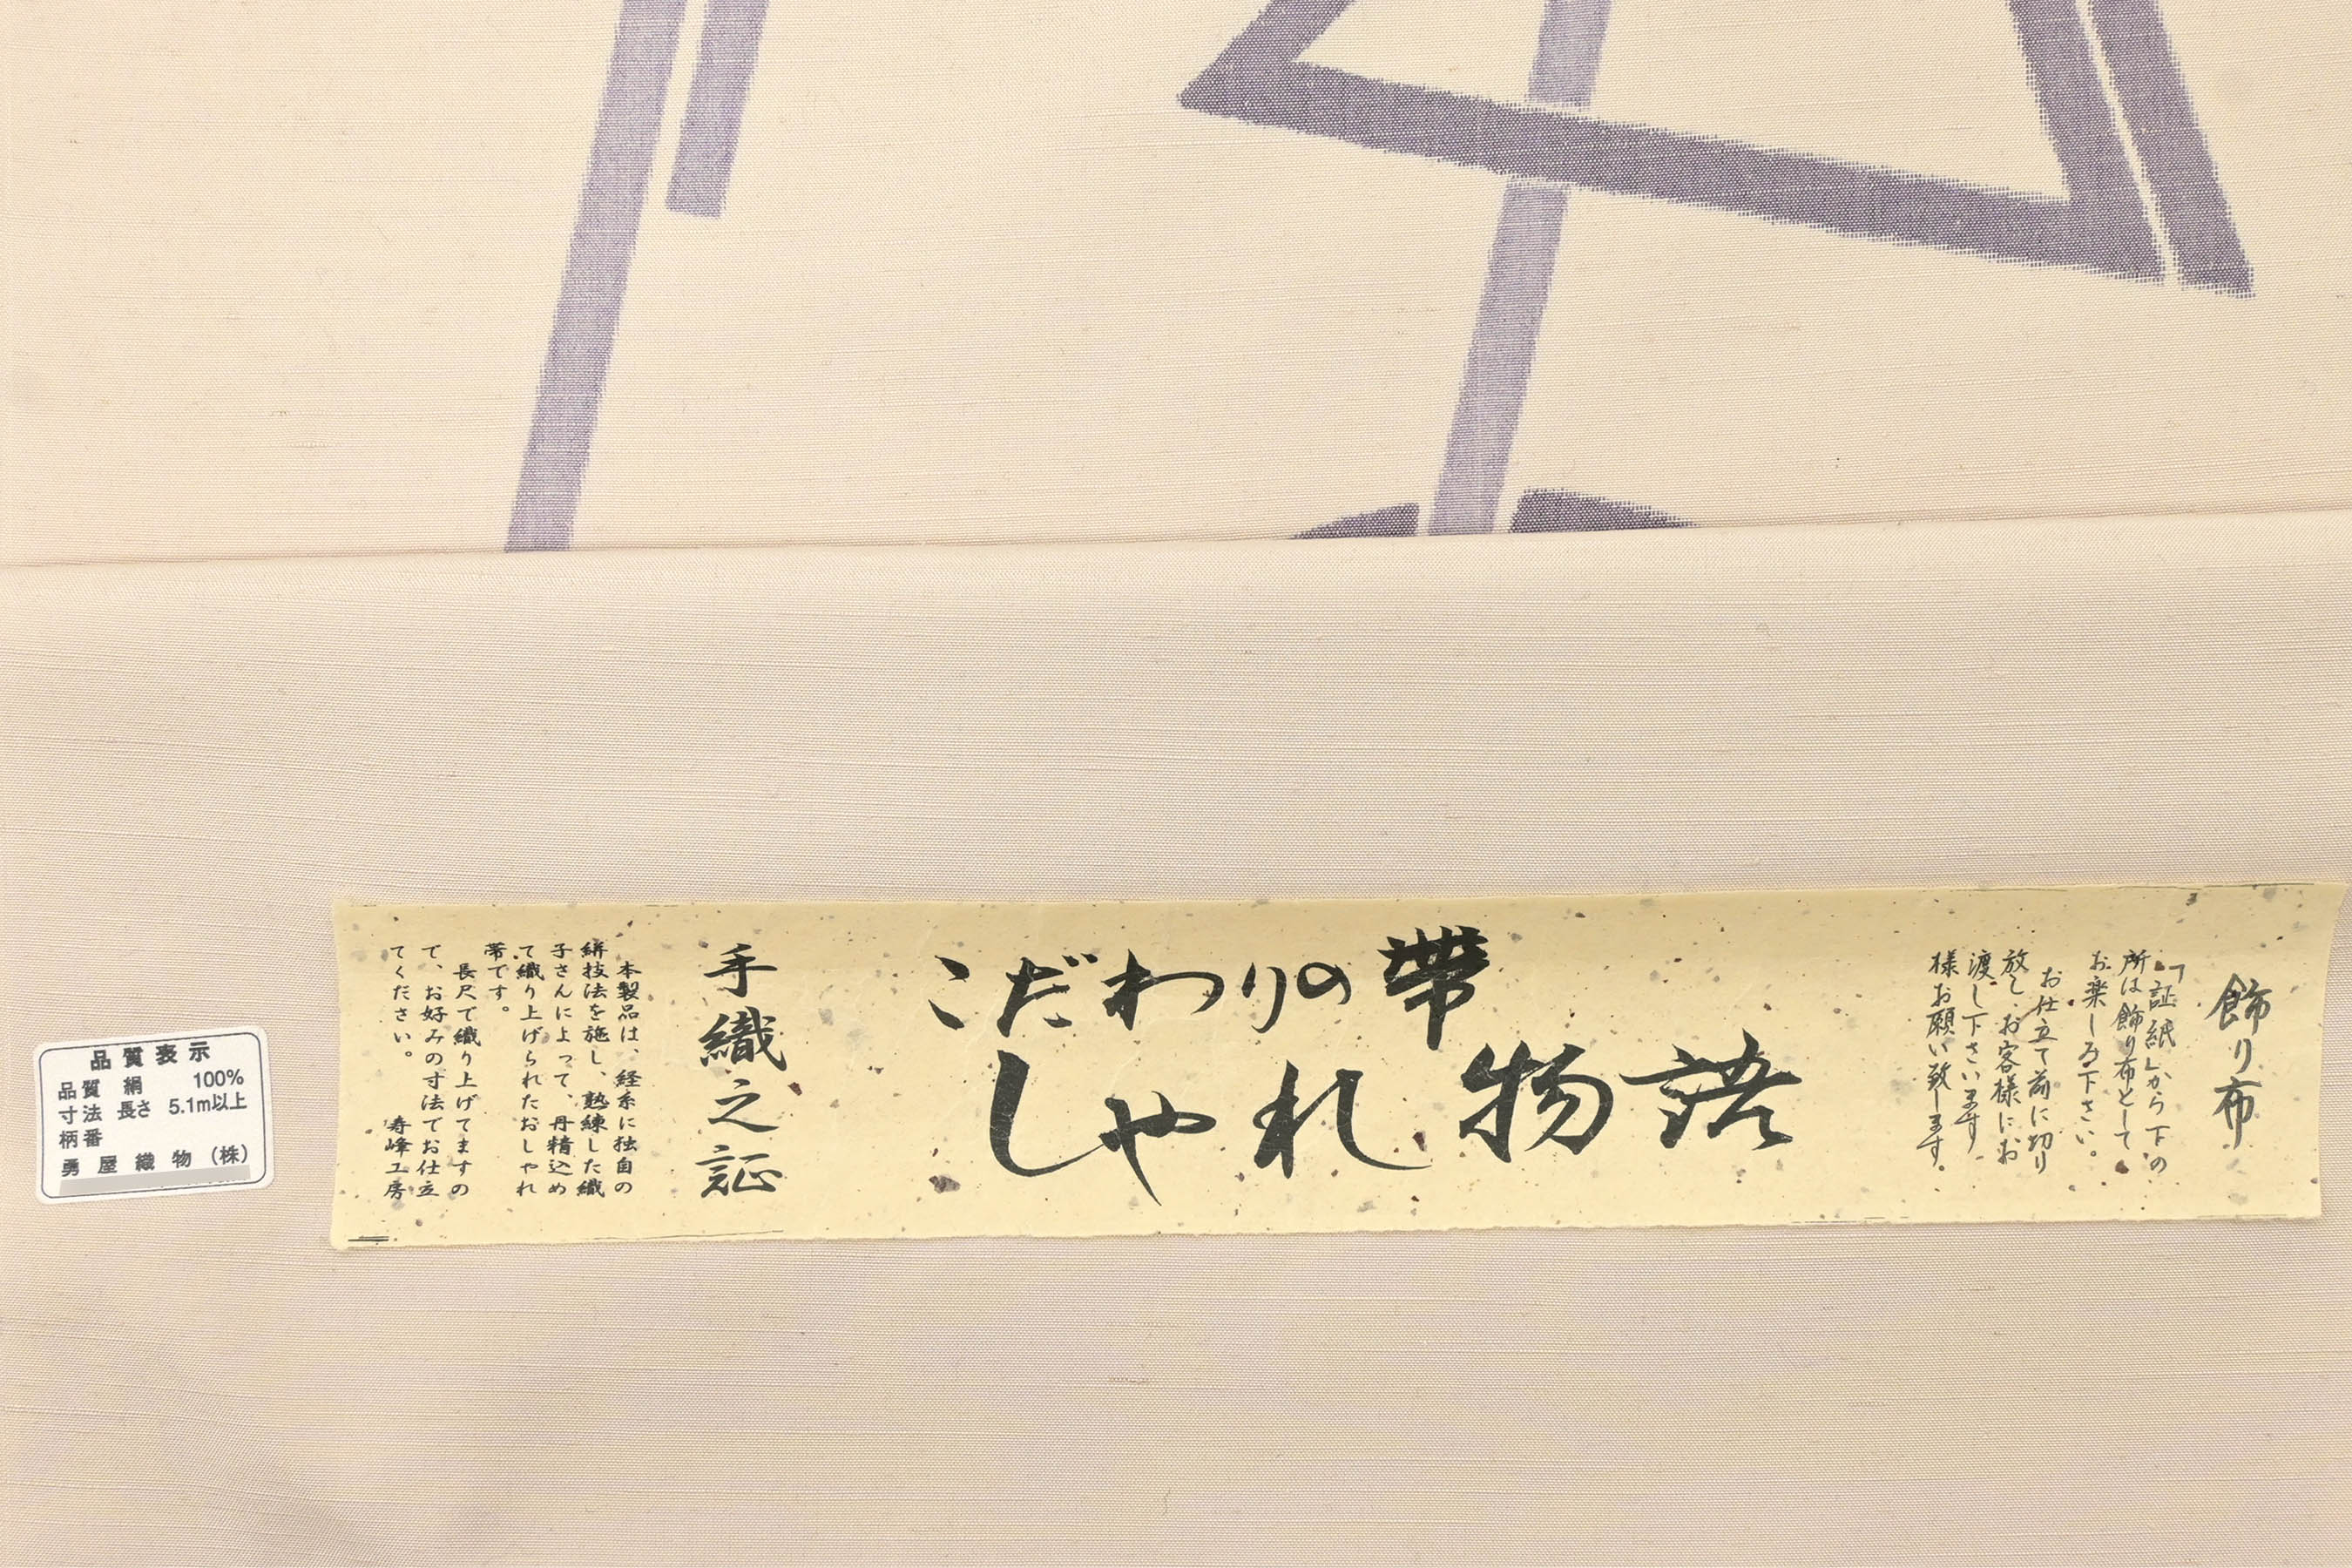 飾り布
「証紙」から下の
所は飾り布として
お楽しみ下さい。
お仕立て前に切り
放し、お客様にお
渡し下さいます
様お願い致します。
こだわりの帯
しゃれ物語
手織之証
本製品は、経糸に独自の
絣技法を施し、熟練した織
子さんによって、丹精込め
て織り上げられたおしゃれ
帯です。
長尺で織り上げてますの
で、お好みの寸法でお仕立
てください。
寿峰工房
品質表示
品質 絹 100%
寸法 長さ 5.1m以上
柄番
勇屋織物(株)